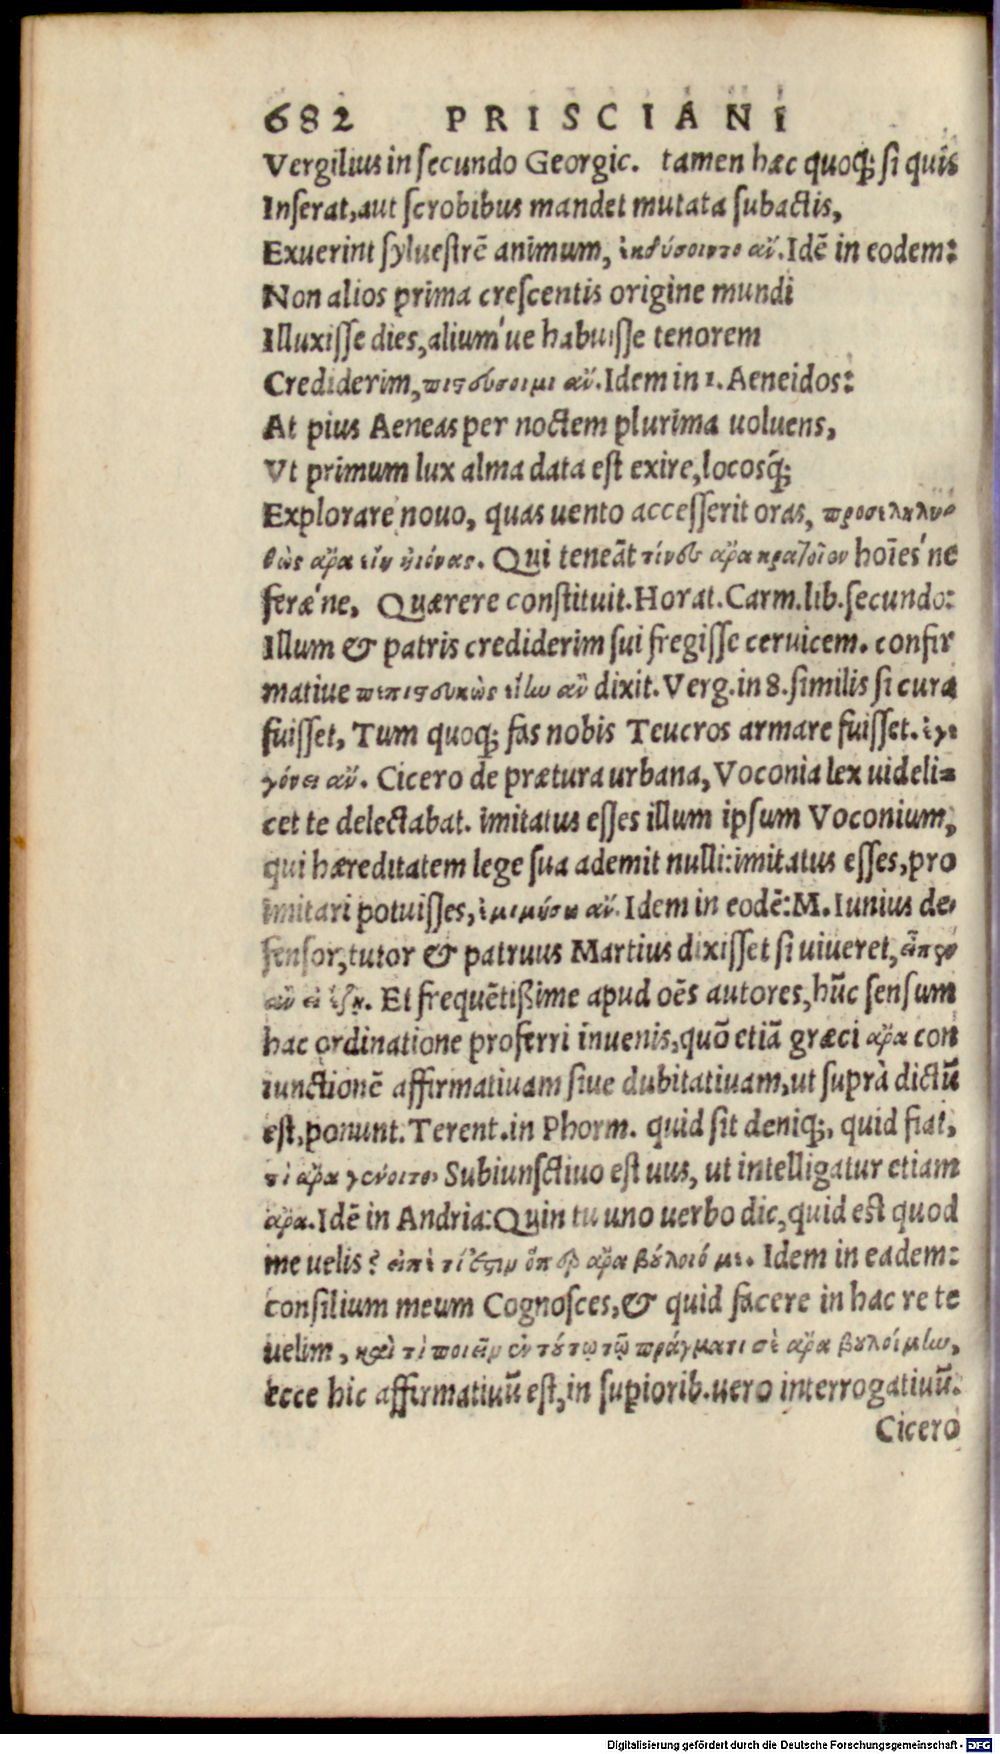 682 PRISCIANI
Vergilius in ſecundo Georgic. tamen hæc quoq; ſi quis
Inſerat, aut ſcrobibus mandet mutata ſubactis,
Exuerint ſylueſtrē animum, ἐκδύσοιντο αὖ. Idē in eodem:
Non alios prima creſcentis origine mundi
Illuxiſſe dies, alium´ue habuiſſe tenorem
Crediderim, πιστεύσοιμι αὖ. Idem in 1. Aeneidos:
At pius Aeneas per noctem plurima uoluens,
Vt primum lux alma data eſt exire, locosq́;
Explorare nouo, quas uento acceſſerit oras, προσεληλυ-
θὼς ἄρα εἴη ἠιόνας. Qui teneāt τίνες ἄρα κρατοῖεν hoīes´ne
feræ´ne, Quærere conſtituit. Horat. Carm. lib. ſecundo:
Illum & patris crediderim ſui fregiſſe ceruicem. confir
matiue πεπιστευκὼς εἴlω αὖ dixit. Verg. in 8. ſimilis ſi cura
fuiſſet, Tum quoq; fas nobis Teucros armare fuiſſet. ἐγε
γόνει αὖ. Cicero de prætura urbana, Voconia lex uideli=
cet te delectabat. imitatus eſſes illum ipſum Voconium,
qui hæreditatem lege ſua ademit nulli: imitatus eſſes, pro
imitari potuiſſes, ἐμιμήσω αὖ. Idem in eodē: M. Iunius de-
fenſor, tutor & patruus Martius dixiſſet ſi uiueret,
αὖ εἰ ἔζη. Et frequētißime apud oēs autores, hūc ſenſum
hac ordinatione proferri inuenis, quō etiā græci ἄρα con
iunctionē affirmatiuam ſiue dubitatiuam, ut ſuprà dictū
eſt, ponunt. Terent. in Phorm. quid ſit deniq;, quid fiat,
τί ἄρα γένοιτο; Subiunſctiuo eſt uus, ut intelligatur etiam
ἄρα. Idē in Andria: Quin tu uno uerbo dic, quid eſt quod
me uelis? εἰπὲ τί ἔστιν ὅπερ ἄρα βύλοιό με. Idem in eadem:
conſilium meum Cognoſces, & quid facere in hac re te
uelim, καὶ τί ποιεῖν ἐν τύτῳ τῷ πράγματι σὲ ἄρα βυλοίμlω,
ecce hic affirmatiuū eſt, in ſupiorib. uero interrogatiuū.
Cicero
Digitalisierung gefördert durch die Deutsche Forschungsgemeinschaft - DFG